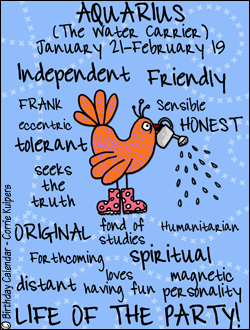 AQUARIUS
(The Water Carrier)
January 21-February 19
Independent Friendly
FRANK Sensible
eccentric HONEST
tolerant
seeks
the
truth
ORIGINAL fond of studies Humanitarian
Forthcoming spiritual
distant loves having fun magnetic personality
LIFE OF THE PARTY!
© Birthday Calendar - Corrie Kuipers